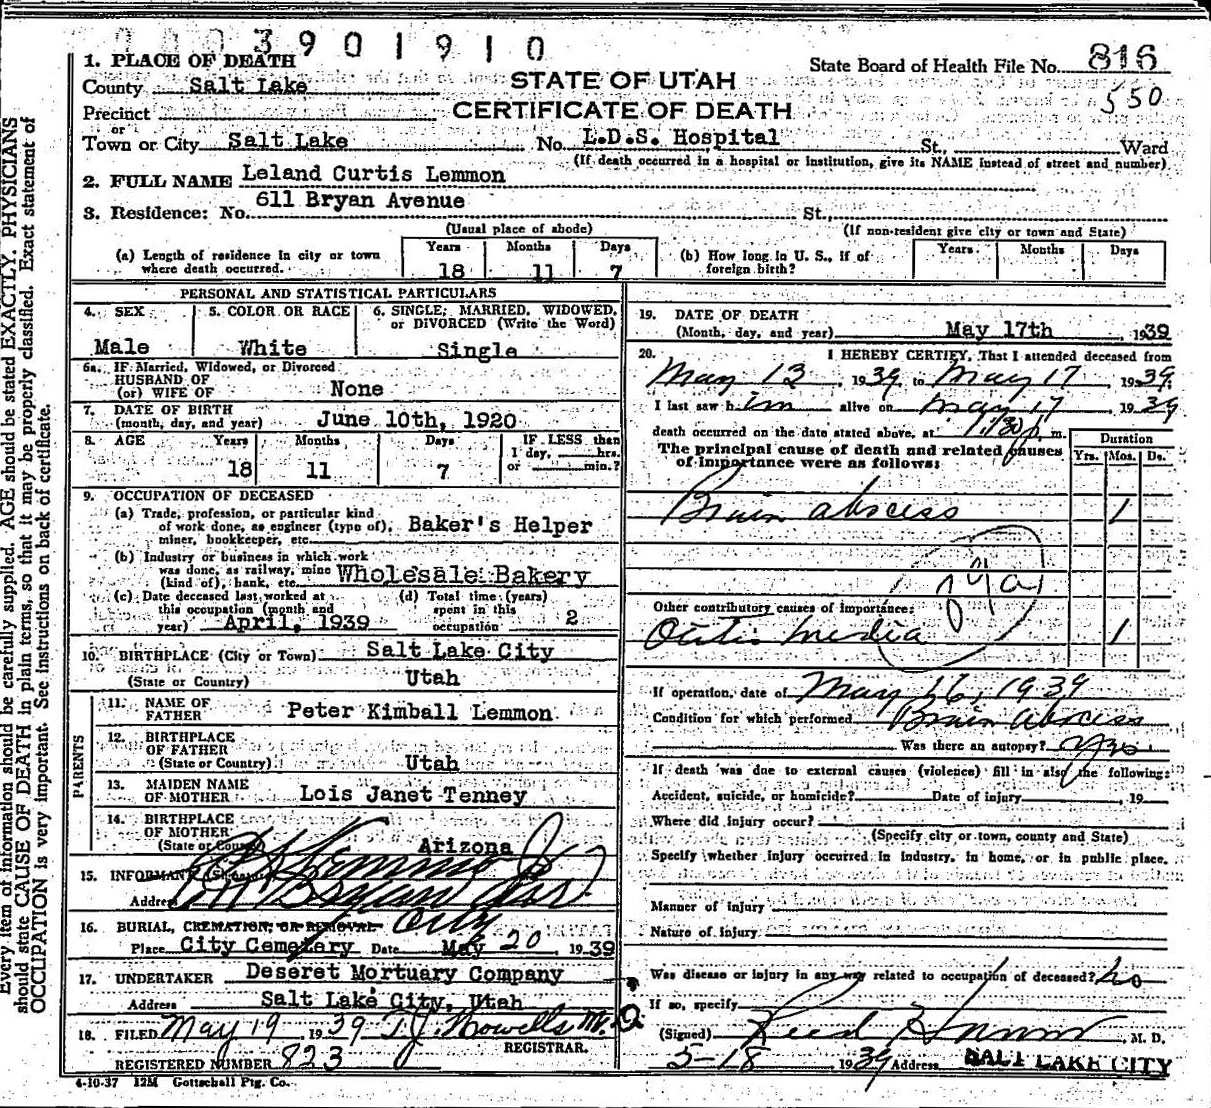 0003901910
816
1. PLACE OF DEATH
State Board of Health File No.
County Salt Lake
STATE OF UTAH
550
Precinct
CERTIFICATE OF DEATH
or
Town or City Salt Lake No. L.D.S. Hospital St., Ward
(If death occurred in a hospital or institution, give its NAME instead of street and number)
2. FULL NAME Leland Curtis Lemmon
3. Residence: No. 611 Bryan Avenue St.,
(Usual place of abode) (If non-resident give city or town and State)
(a) Length of residence in city or town where death occurred. Years 18 Months 11 Days 7
(b) How long in U. S., if of foreign birth? Years Months Days
PERSONAL AND STATISTICAL PARTICULARS
4. SEX Male
5. COLOR OR RACE White
6. SINGLE, MARRIED, WIDOWED, or DIVORCED (Write the Word) Single
6a. IF Married, Widowed, or Divorced
HUSBAND OF
(or) WIFE OF None
7. DATE OF BIRTH
(month, day, and year) June 10th, 1920
8. AGE Years 18 Months 11 Days 7
IF LESS than 1 day, hrs. or min.?
9. OCCUPATION OF DECEASED
(a) Trade, profession, or particular kind
of work done, as engineer (type of),
miner, bookkeeper, etc. Baker's Helper
(b) Industry or business in which work
was done, as railway, mine
(kind of), bank, etc. Wholesale Bakery
(c) Date deceased last worked at
this occupation (month and
year) April, 1939
(d) Total time (years)
spent in this
occupation 2
10. BIRTHPLACE (City or Town) Salt Lake City
(State or Country) Utah
PARENTS
11. NAME OF
FATHER Peter Kimball Lemmon
12. BIRTHPLACE
OF FATHER
(State or Country) Utah
13. MAIDEN NAME
OF MOTHER Lois Janet Tenney
14. BIRTHPLACE
OF MOTHER
(State or Country) Arizona
15. INFORMANT
Address 611 Bryan Ave.
City
16. BURIAL, CREMATION, OR REMOVAL
Place City Cemetery Date May 20 1939
17. UNDERTAKER Deseret Mortuary Company
Address Salt Lake City, Utah
18. FILED May 19 1939 T.J. Howells M.D.
REGISTRAR.
REGISTERED NUMBER 823
4-10-37 12M Gottschall Ptg. Co.
19. DATE OF DEATH
(Month, day, and year) May 17th 1939
20. I HEREBY CERTIFY, That I attended deceased from
May 13, 1939, to May 17, 1939.
I last saw him alive on May 17, 1939
death occurred on the date stated above, at 1:30 p. m.
The principal cause of death and related causes
of importance were as follows:
Duration
Yrs. Mos. Ds.
Brain abscess 1
Other contributory causes of importance:
Otitis media 1
If operation, date of May 16, 1939
Condition for which performed Brain Abscess
Was there an autopsy? Yes
If death was due to external causes (violence) fill in also the following:
Accident, suicide, or homicide? Date of injury , 19
Where did injury occur?
(Specify city or town, county and State)
Specify whether injury occurred in industry, in home, or in public place.
Manner of injury
Nature of injury
Was disease or injury in any way related to occupation of deceased? no
If so, specify
(Signed) Reed , M. D.
5-18 1939 Address SALT LAKE CITY
Every item of information should be carefully supplied. AGE should be stated EXACTLY. PHYSICIANS
should state CAUSE OF DEATH in plain terms, so that it may be properly classified. Exact statement of
OCCUPATION is very important. See instructions on back of certificate.